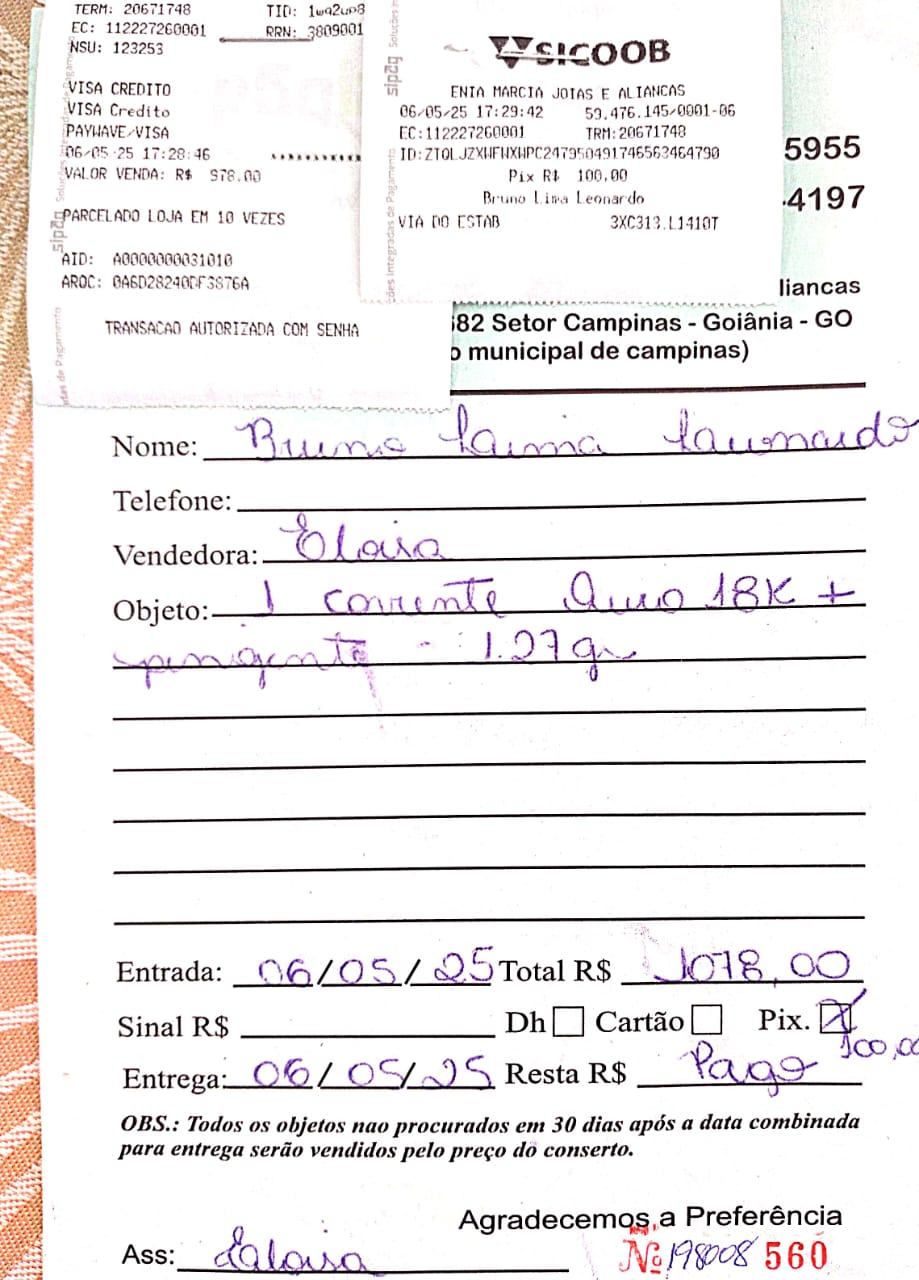 TERM: 20671748 TID: 1wq2up8
EC: 112227260001 RRN: 3809001
NSU: 123253
VISA CREDITO
VISA Credito
PAYWAVE/VISA
06/05/25 17:28:46
VALOR VENDA: R$ 978,00
PARCELADO LOJA EM 10 VEZES
AID: A0000000031010
TRANSACAO AUTORIZADA COM SENHA
sipag Soluções Integradas de Pagamento
SICOOB
ENIA MARCIA JOIAS E ALIANCAS
06/05/25 17:29:42 59.476.145/0001-06
EC:112227260001 TRM:20671748
Pix R$ 100,00
Bruno Lima Leonardo
VIA DO ESTAB 3XC313.L1410T
sipag Soluções
ções Integradas de Pagamento
5955
4197
liancas
682 Setor Campinas - Goiânia - GO
o municipal de campinas)
Nome: Bruno Laima Launardo
Telefone:
Vendedora: Eloisa
Objeto: 1 corrente Ouro 18K +
pingente - 1.27 gr
Entrada: 06/05/25 Total R$ 1078,00
Sinal R$ Dh Cartão Pix. X
100,00
Entrega: 06/05/25 Resta R$ Pago
OBS.: Todos os objetos nao procurados em 30 dias após a data combinada
para entrega serão vendidos pelo preço do conserto.
Agradecemos a Preferência
Ass: Eloisa Nº 198008 560